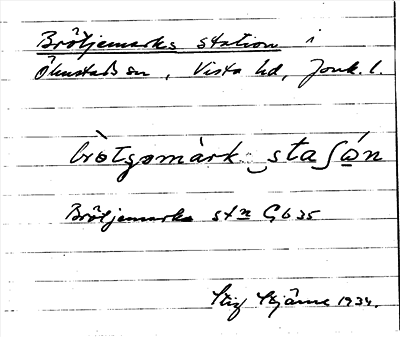 Bråtjemarks station i
Ölmstads sn, Vista hd, Jönk. l.
bròtgəmàrk staʃón
Bråtjemarks stn Gb 35
Stig Stjärne 1934.